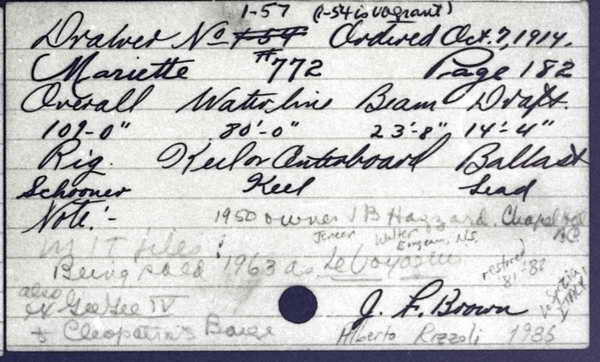 1-57 (1-54 is vagrant)
Drawer No 1-54 Ordered Oct. 7, 1914.
Mariette #772 Page 182
Overall Waterline Beam Draft.
109'-0" 80'-0" 23'-8" 14'-4"
Rig. Keel or Centreboard Ballast
Schooner Keel Lead
Note:- 1950 owner J B Hazzard. Chapel
MIT files: Walter
Being sold 1963 as Le Voyageur
restored '81-'82
also
ex Gee Gee IV J. F. Brown
+ Cleopatra's Barge Alberto Rizzoli 1985